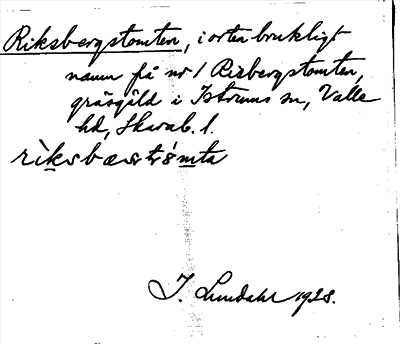 Riksbergstomten, i orten brukligt
namn på nr 1 Risbergstomten,
gräsgäld i Istrums sn, Valle
hd, Skarab. l.
rìksbærstòmta
J. Lundahl 1928.